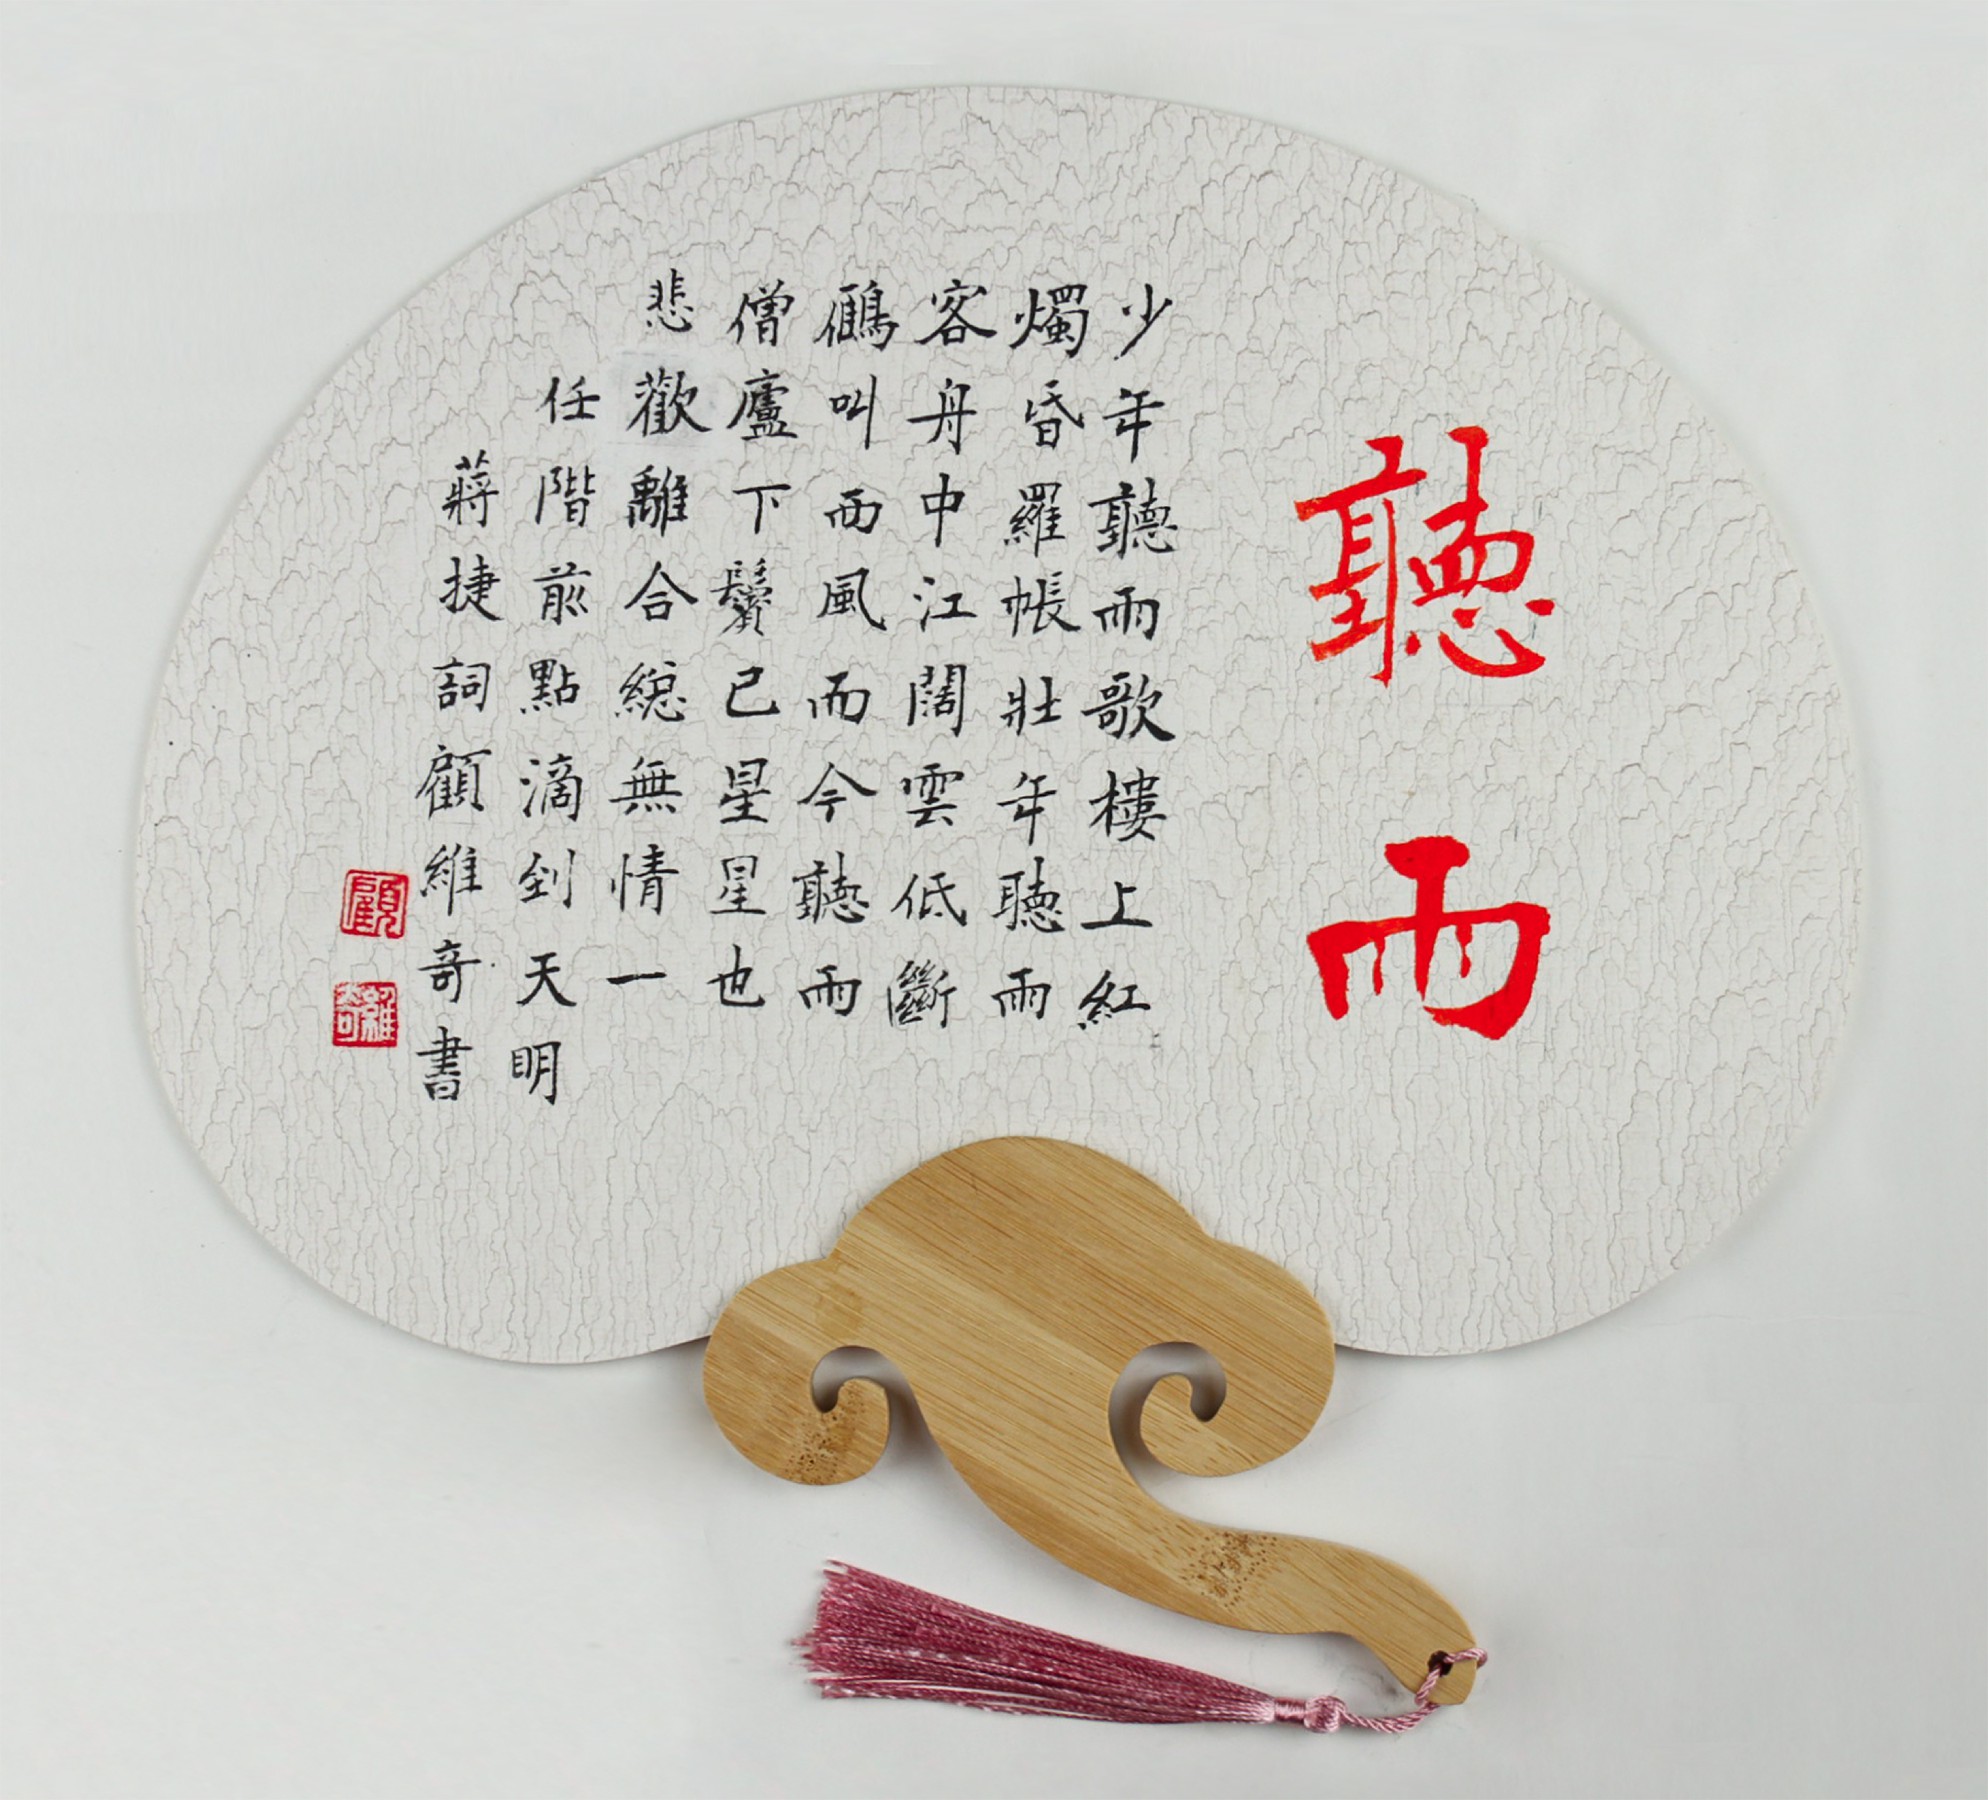 聽雨
少年聽雨歌樓上紅
燭昏羅帳壯年聴雨
客舟中江闊雲低斷
鴈叫西風而今聽雨
僧廬下鬢已星星也
悲歡離合總無情一
任階前點滴到天明
蔣捷詞顧維奇書
顧
維奇